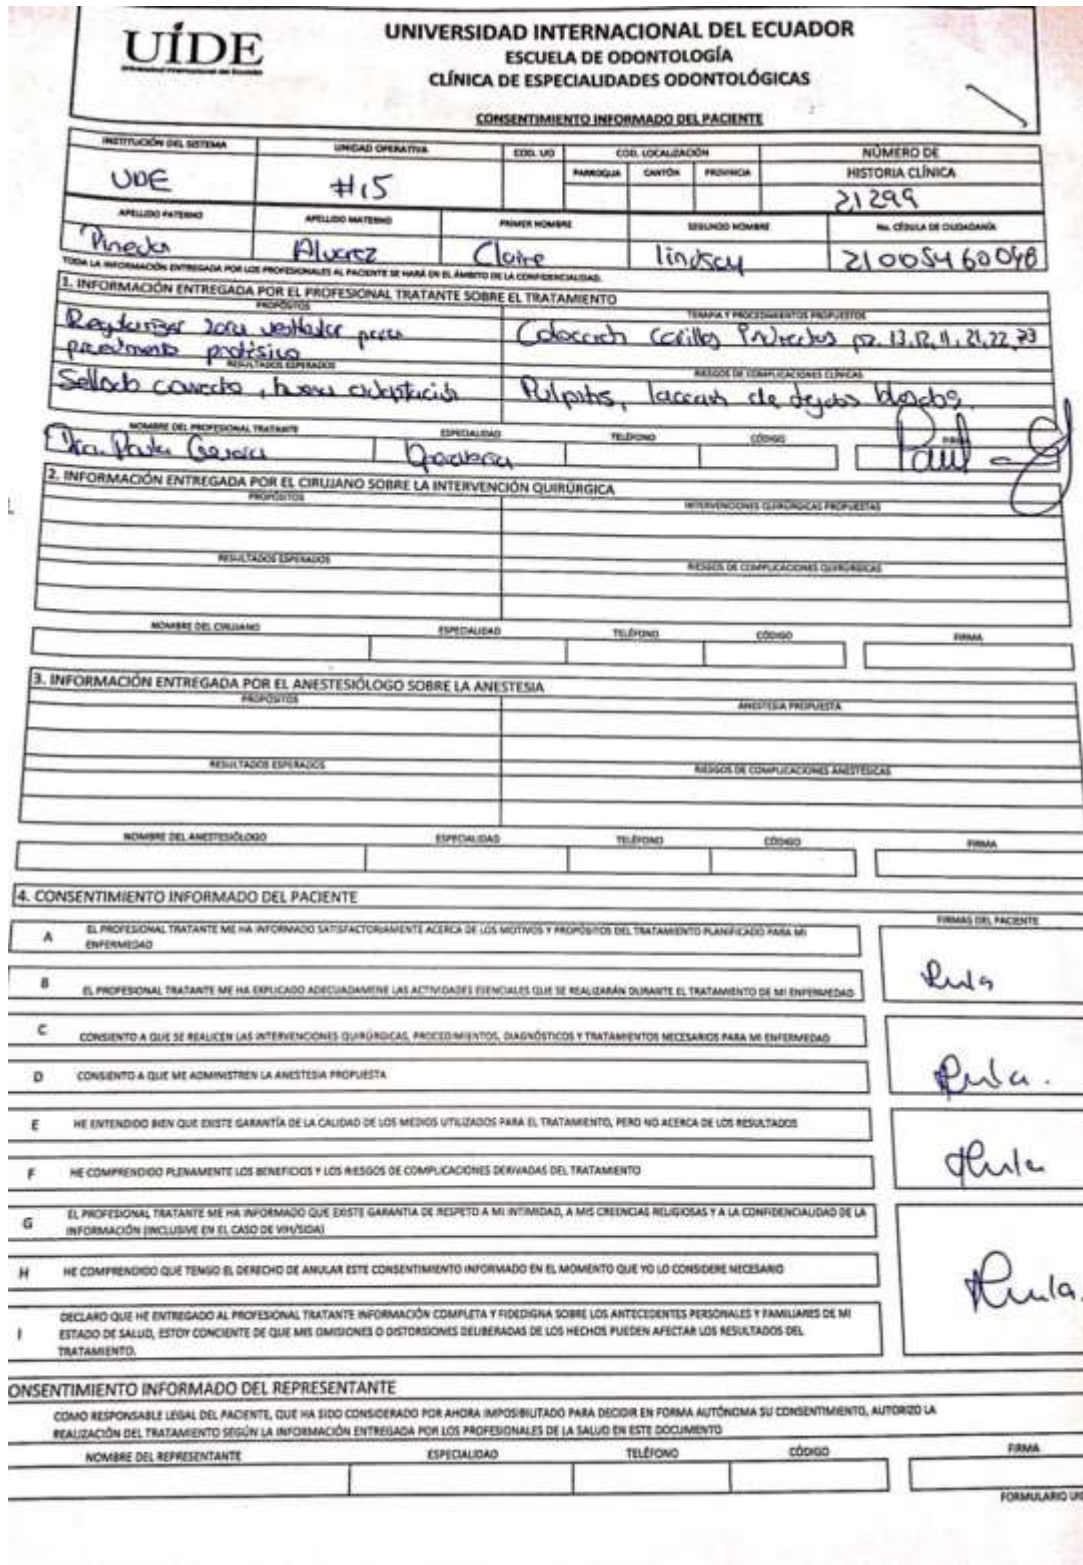 UÍDE
Universidad Internacional del Ecuador
UNIVERSIDAD INTERNACIONAL DEL ECUADOR
ESCUELA DE ODONTOLOGÍA
CLÍNICA DE ESPECIALIDADES ODONTOLÓGICAS
CONSENTIMIENTO INFORMADO DEL PACIENTE
INSTITUCIÓN DEL SISTEMA UNIDAD OPERATIVA COD. UO COD. LOCALIZACIÓN NÚMERO DE HISTORIA CLÍNICA
PARROQUIA CANTÓN PROVINCIA
UDE #15 21299
APELLIDO PATERNO APELLIDO MATERNO PRIMER NOMBRE SEGUNDO NOMBRE No. CÉDULA DE CIUDADANÍA
Pineda Alvarez Claire lindsay
TODA LA INFORMACIÓN ENTREGADA POR LOS PROFESIONALES AL PACIENTE SE HARÁ EN EL ÁMBITO DE LA CONFIDENCIALIDAD.
1. INFORMACIÓN ENTREGADA POR EL PROFESIONAL TRATANTE SOBRE EL TRATAMIENTO
PROPÓSITOS TERAPIA Y PROCEDIMIENTOS PROPUESTOS
Regularizar zona vestibular para
procedimiento protésico
Carillas pz. 13, 12, 11, 21, 22, 23
RESULTADOS ESPERADOS RIESGOS DE COMPLICACIONES CLÍNICAS
Sellado correcto, buena adaptación
Pulpitis, de tejidos blandos.
NOMBRE DEL PROFESIONAL TRATANTE ESPECIALIDAD TELÉFONO CÓDIGO FIRMA
Dra.
2. INFORMACIÓN ENTREGADA POR EL CIRUJANO SOBRE LA INTERVENCIÓN QUIRÚRGICA
PROPÓSITOS INTERVENCIONES QUIRÚRGICAS PROPUESTAS
RESULTADOS ESPERADOS RIESGOS DE COMPLICACIONES QUIRÚRGICAS
NOMBRE DEL CIRUJANO ESPECIALIDAD TELÉFONO CÓDIGO FIRMA
3. INFORMACIÓN ENTREGADA POR EL ANESTESIÓLOGO SOBRE LA ANESTESIA
PROPÓSITOS ANESTESIA PROPUESTA
RESULTADOS ESPERADOS RIESGOS DE COMPLICACIONES ANESTÉSICAS
NOMBRE DEL ANESTESIÓLOGO ESPECIALIDAD TELÉFONO CÓDIGO FIRMA
4. CONSENTIMIENTO INFORMADO DEL PACIENTE
FIRMAS DEL PACIENTE
A EL PROFESIONAL TRATANTE ME HA INFORMADO SATISFACTORIAMENTE ACERCA DE LOS MOTIVOS Y PROPÓSITOS DEL TRATAMIENTO PLANIFICADO PARA MI
ENFERMEDAD
B EL PROFESIONAL TRATANTE ME HA EXPLICADO ADECUADAMENE LAS ACTIVIDADES ESENCIALES QUE SE REALIZARÁN DURANTE EL TRATAMIENTO DE MI ENFERMEDAD
C CONSIENTO A QUE SE REALICEN LAS INTERVENCIONES QUIRÚRGICAS, PROCEDIMIENTOS, DIAGNÓSTICOS Y TRATAMIENTOS NECESARIOS PARA MI ENFERMEDAD
D CONSIENTO A QUE ME ADMINISTREN LA ANESTESIA PROPUESTA
E HE ENTENDIDO BIEN QUE EXISTE GARANTÍA DE LA CALIDAD DE LOS MEDIOS UTILIZADOS PARA EL TRATAMIENTO, PERO NO ACERCA DE LOS RESULTADOS
F HE COMPRENDIDO PLENAMENTE LOS BENEFICIOS Y LOS RIESGOS DE COMPLICACIONES DERIVADAS DEL TRATAMIENTO
G EL PROFESIONAL TRATANTE ME HA INFORMADO QUE EXISTE GARANTIA DE RESPETO A MI INTIMIDAD, A MIS CREENCIAS RELIGIOSAS Y A LA CONFIDENCIALIDAD DE LA
INFORMACIÓN (INCLUSIVE EN EL CASO DE VIH/SIDA)
H HE COMPRENDIDO QUE TENGO EL DERECHO DE ANULAR ESTE CONSENTIMIENTO INFORMADO EN EL MOMENTO QUE YO LO CONSIDERE NECESARIO
I DECLARO QUE HE ENTREGADO AL PROFESIONAL TRATANTE INFORMACIÓN COMPLETA Y FIDEDIGNA SOBRE LOS ANTECEDENTES PERSONALES Y FAMILIARES DE MI
ESTADO DE SALUD, ESTOY CONCIENTE DE QUE MIS OMISIONES O DISTORSIONES DELIBERADAS DE LOS HECHOS PUEDEN AFECTAR LOS RESULTADOS DEL
TRATAMIENTO.
ONSENTIMIENTO INFORMADO DEL REPRESENTANTE
COMO RESPONSABLE LEGAL DEL PACIENTE, QUE HA SIDO CONSIDERADO POR AHORA IMPOSIBILITADO PARA DECIDIR EN FORMA AUTÓNOMA SU CONSENTIMIENTO, AUTORIZO LA
REALIZACIÓN DEL TRATAMIENTO SEGÚN LA INFORMACIÓN ENTREGADA POR LOS PROFESIONALES DE LA SALUD EN ESTE DOCUMENTO
NOMBRE DEL REPRESENTANTE ESPECIALIDAD TELÉFONO CÓDIGO FIRMA
FORMULARIO UID